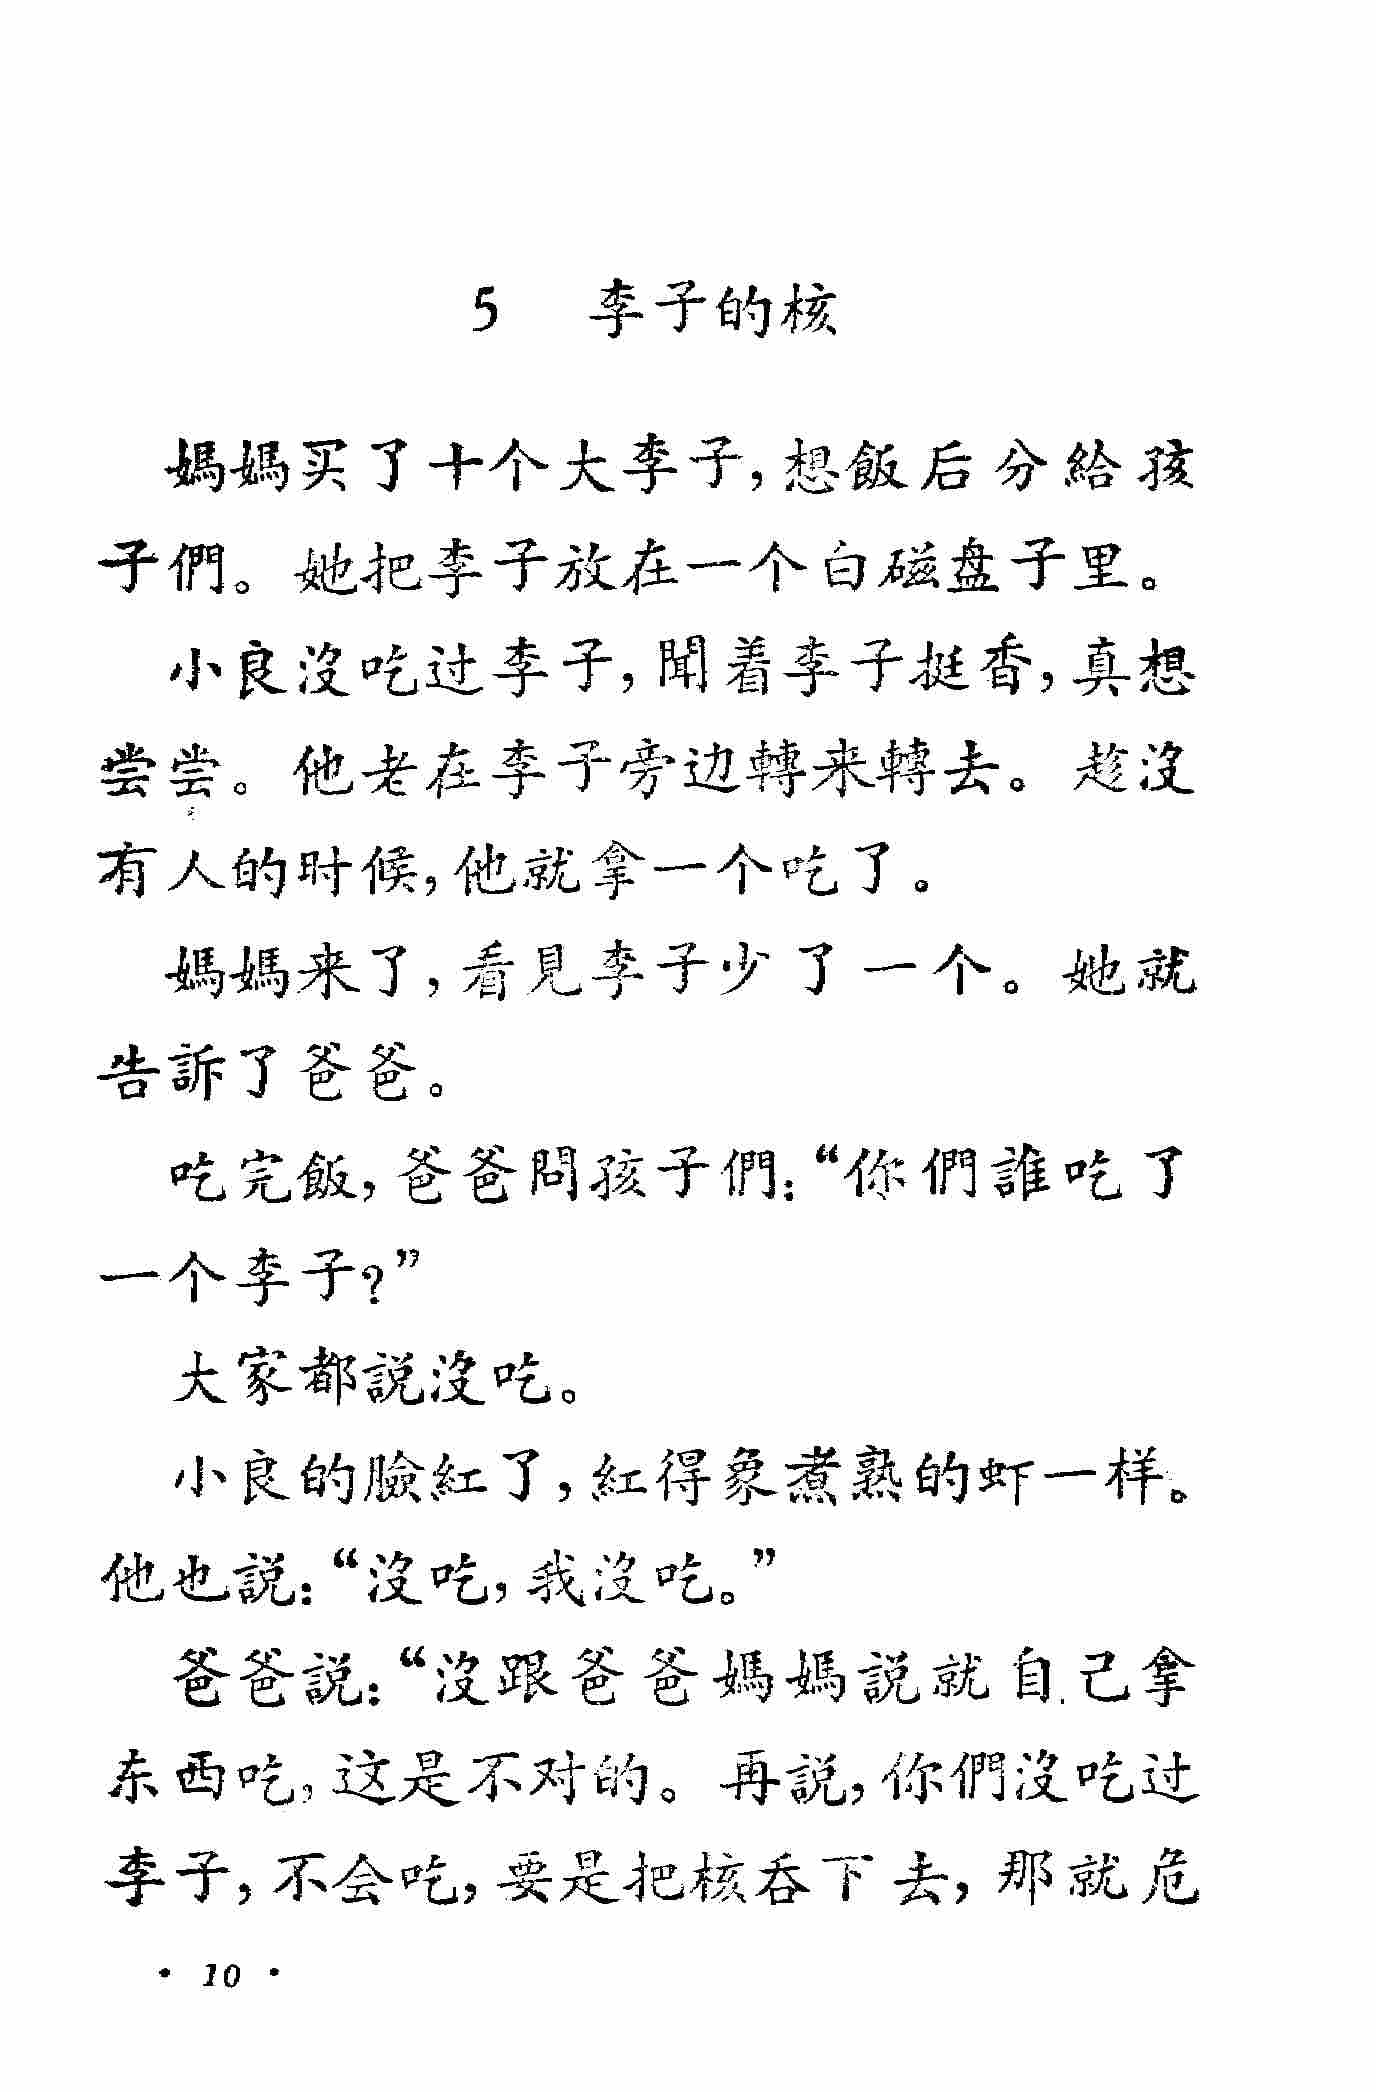 5 李子的核
媽媽买了十个大李子，想飯后分給孩
子們。她把李子放在一个白磁盘子里。
小良沒吃过李子，聞着李子挺香，真想
尝尝。他老在李子旁边轉来轉去。趁沒
有人的时候，他就拿一个吃了。
媽媽来了，看見李子少了一个。她就
告訴了爸爸。
吃完飯，爸爸問孩子們：“你們誰吃了
一个李子？”
大家都說沒吃。
小良的臉紅了，紅得象煮熟的虾一样。
他也說：“沒吃，我沒吃。”
爸爸說：“沒跟爸爸媽媽說就自己拿
东西吃，这是不对的。再說，你們沒吃过
李子，不会吃，要是把核吞下去，那就危
· 10 ·